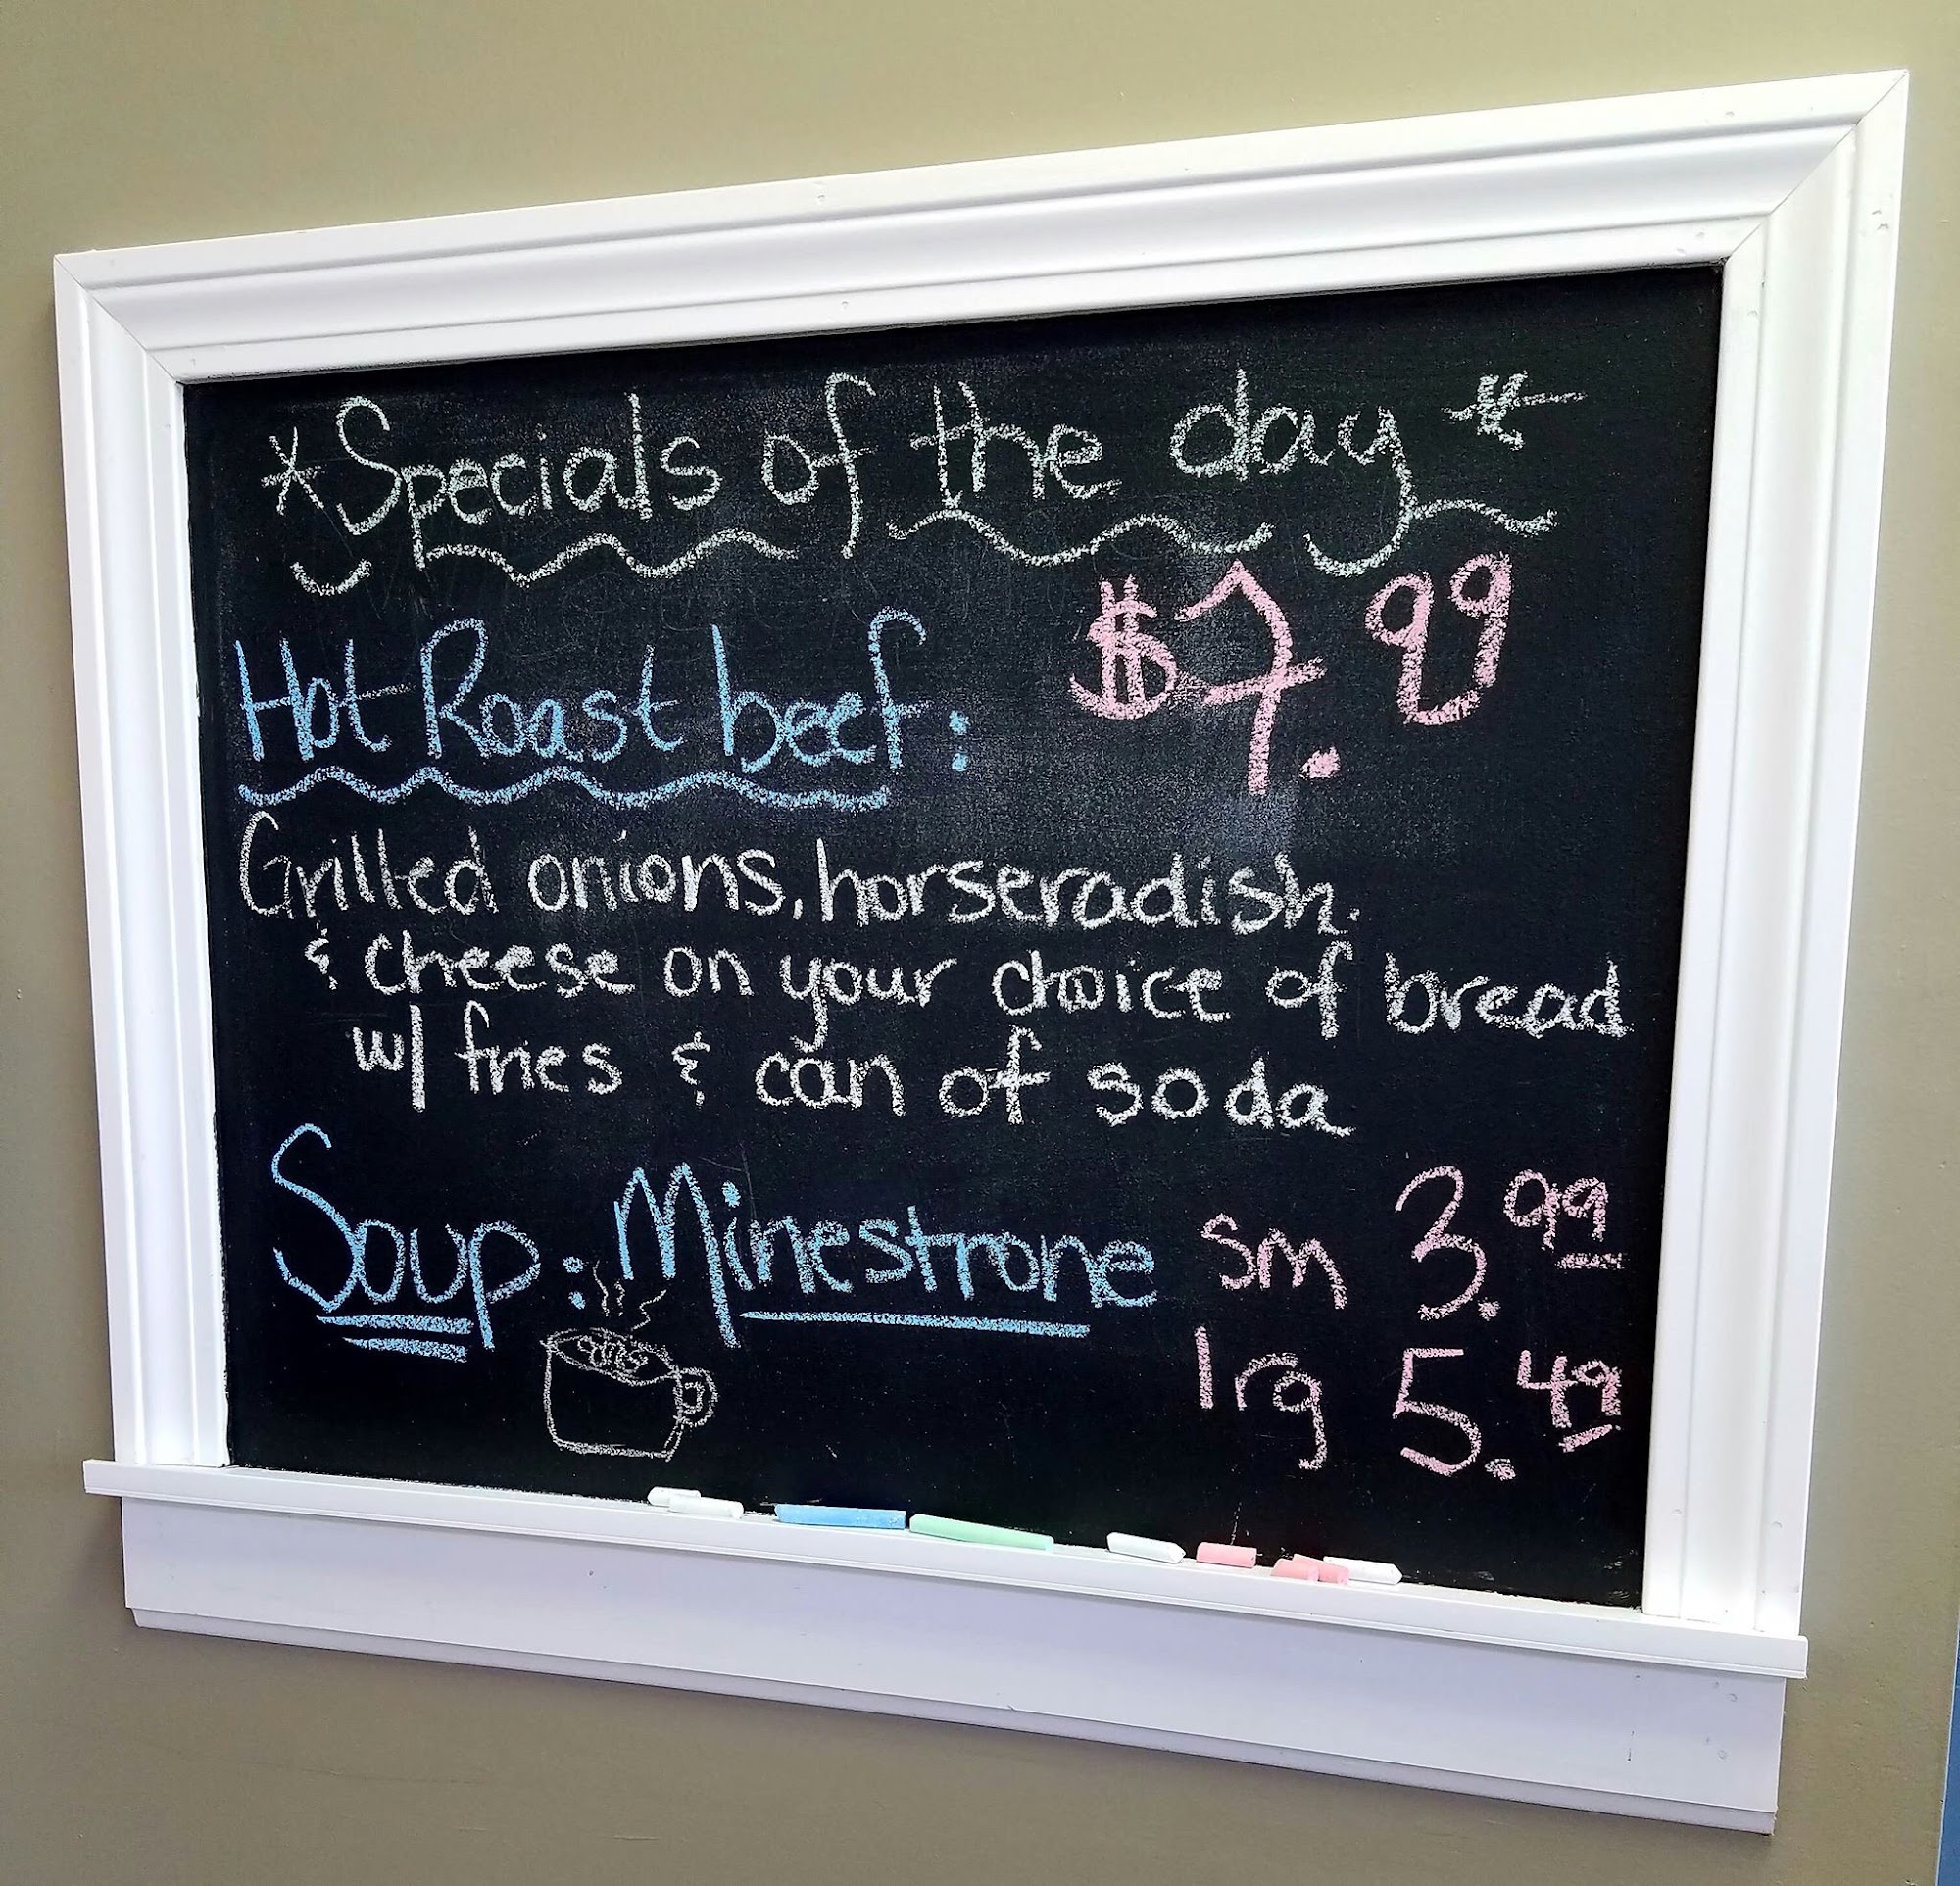 *Specials of the day*
Hot Roast beef: $7.99
Grilled onions, horseradish.
& cheese on your choice of bread
w/ fries & can of soda
Soup: Minestrone sm 3.99
lrg 5.49